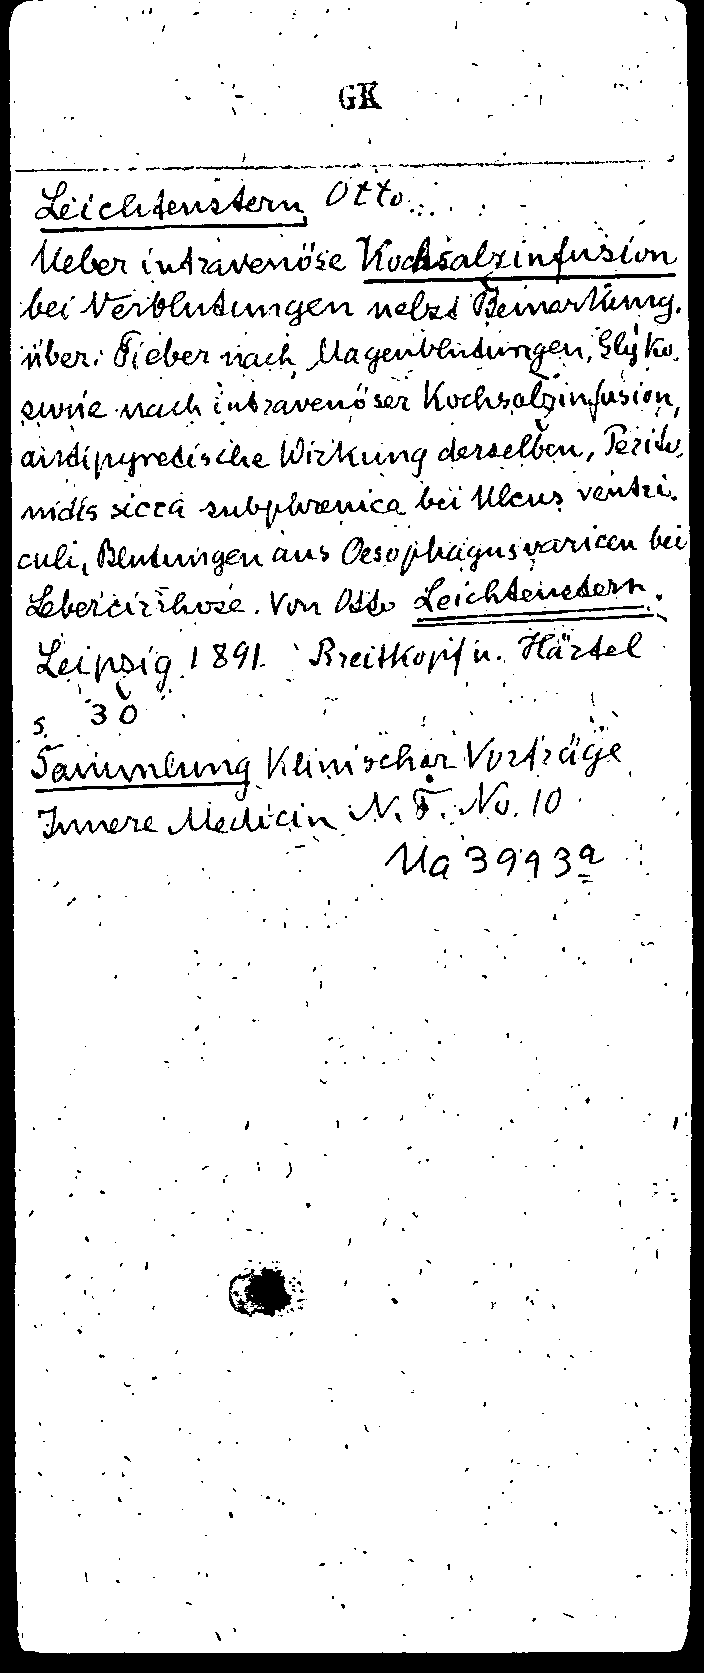 GK
Leichtenstern, Otto
Ueber intravenöse Kochsalzinfusion
bei Verblutungen nebst Bemerkung.
über: Fieber nach Magenblutungen, Glyko-
surie nach intravenöser Kochsalzinfusion,
antipyretische Wirkung derselben, Perito-
nitis sicca subphrenica bei Ulcus ventri-
culi, Blutungen aus Oesophagusvaricen bei
Lebercirrhose. Von Otto Leichtenstern.
Leipzig 1891. Breitkopf u. Härtel
S. 30
Sammlung Klinischer Vorträge
Innere Medicin N. F. No. 10
Ua 3993a